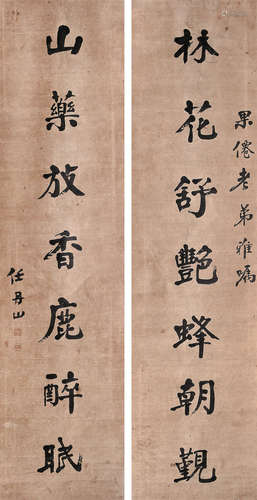 果僊老弟雅嘱
林花舒豔蜂朝覲
山藥放香鹿醉眠
任丹山